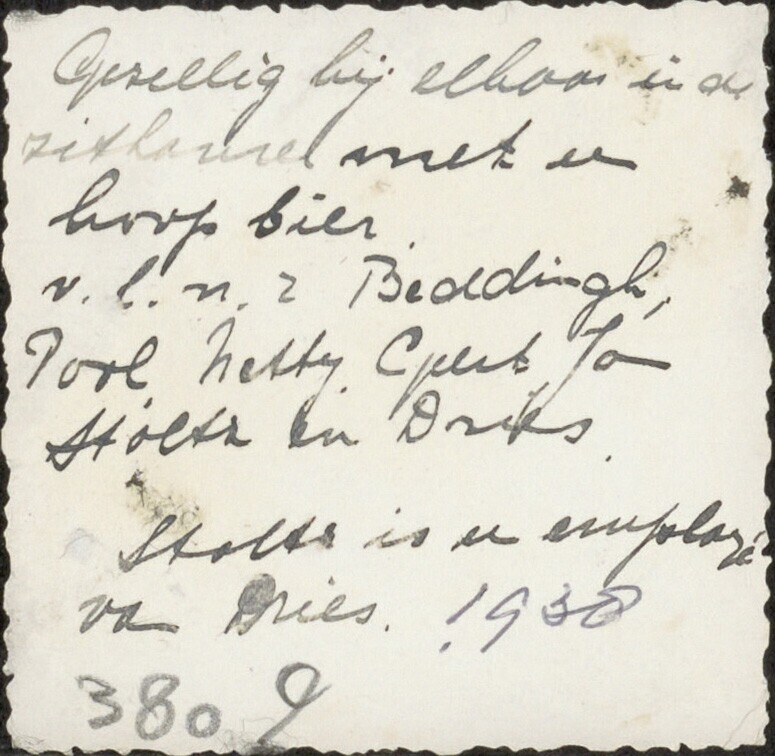 Gezellig bij elkaar in de
zitkamer met een
hoop bier.
v.l.n.r Beddingh,
Pool, Netty, Gert, Jo
Stoltz en Dries.
Stoltz is een employé
van Dries. 1938
380 9